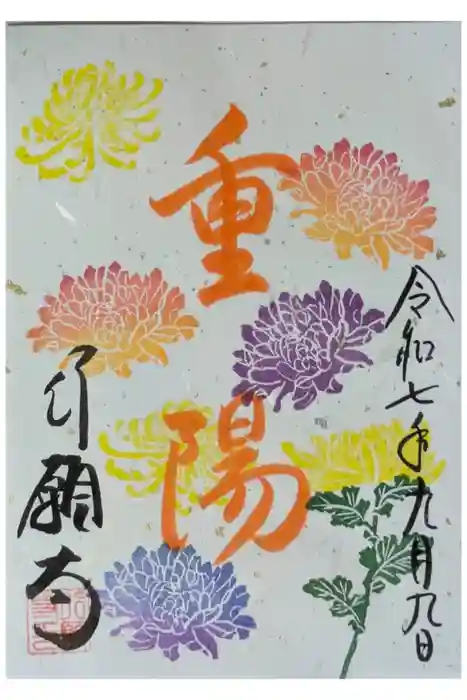 令和七年九月九日
重陽
行願寺